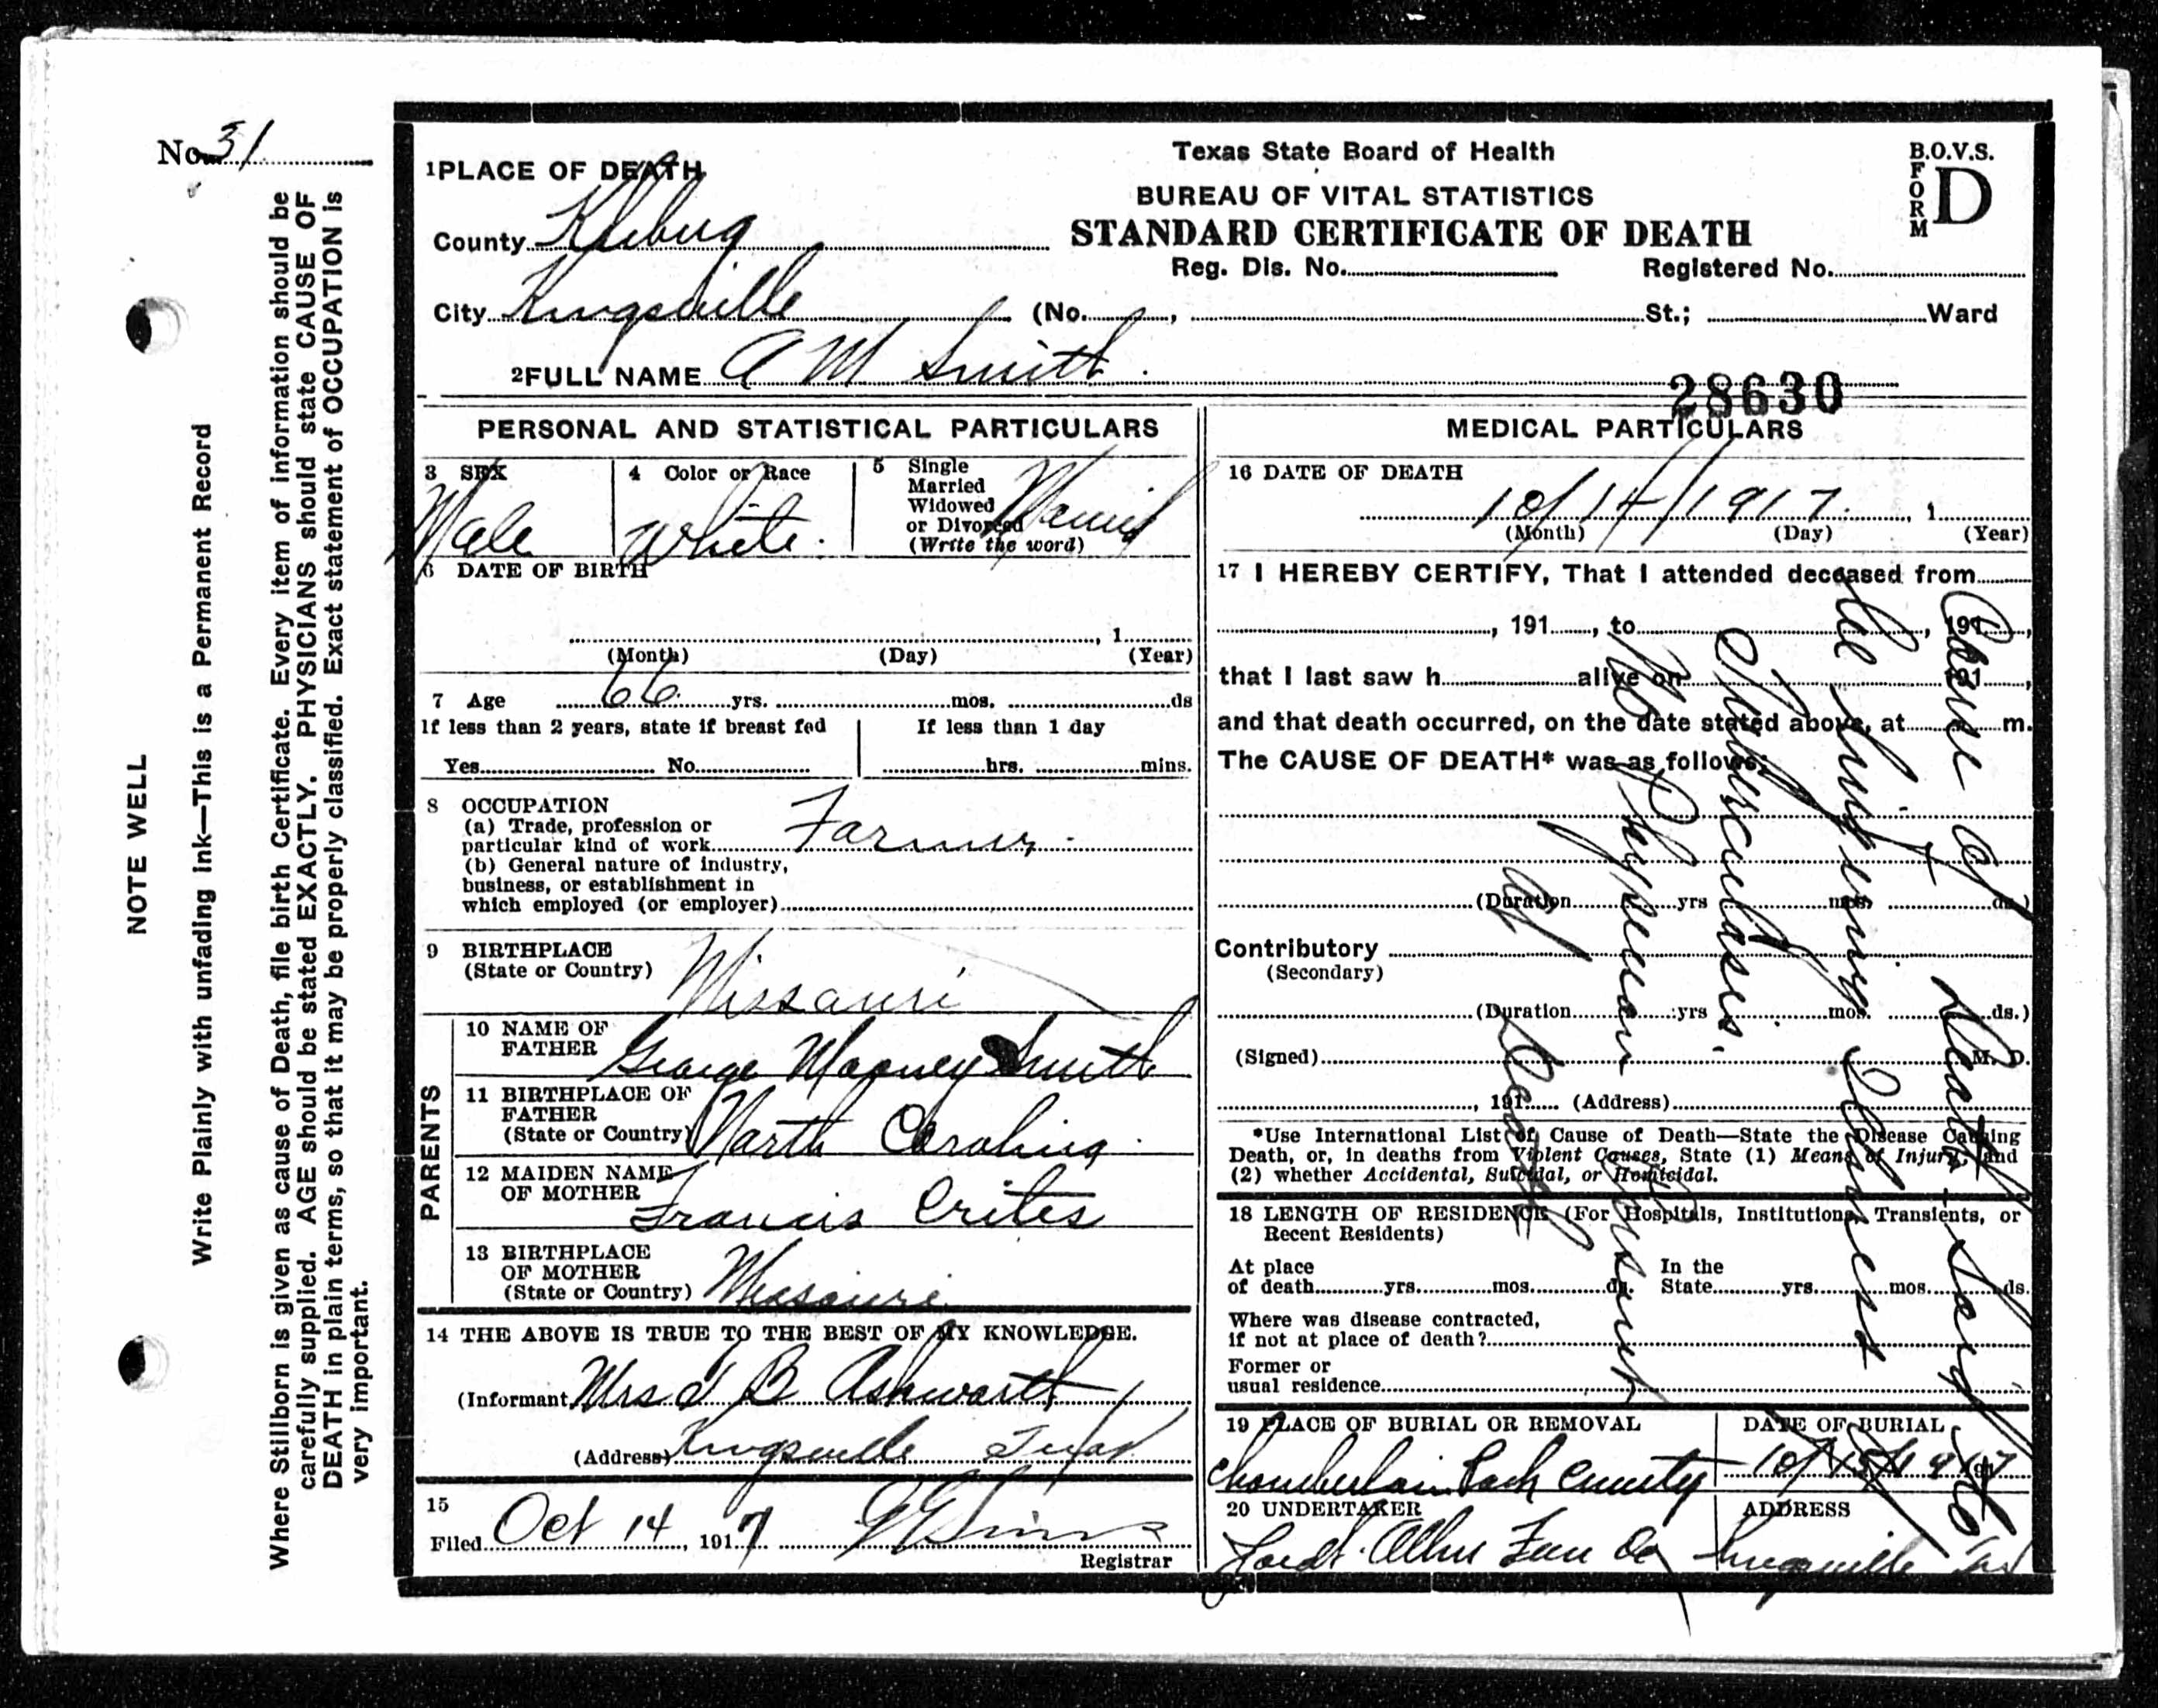 No. 31
NOTE WELL
Write Plainly with unfading ink—This is a Permanent Record
Where Stillborn is given as cause of Death, file birth Certificate. Every item of information should be
carefully supplied. AGE should be stated EXACTLY. PHYSICIANS should state CAUSE OF
DEATH in plain terms, so that it may be properly classified. Exact statement of OCCUPATION is
very important.
Texas State Board of Health
BUREAU OF VITAL STATISTICS
STANDARD CERTIFICATE OF DEATH
B.O.V.S.
FORM D
1 PLACE OF DEATH
County Kleberg
Reg. Dis. No. Registered No.
City Kingsville (No. , St.; Ward
2 FULL NAME A M Smith
28630
PERSONAL AND STATISTICAL PARTICULARS
3 SEX
Male
4 Color or Race
White
5 Single
Married
Widowed
or Divorced
(Write the word)
6 DATE OF BIRTH
, 1
(Month) (Day) (Year)
7 Age 66 yrs. mos. ds
If less than 2 years, state if breast fed
Yes No
If less than 1 day
hrs. mins.
8 OCCUPATION
(a) Trade, profession or
particular kind of work Farmer
(b) General nature of industry,
business, or establishment in
which employed (or employer)
9 BIRTHPLACE
(State or Country) Missouri
PARENTS
10 NAME OF
FATHER George Mooney Smith
11 BIRTHPLACE OF
FATHER
(State or Country) North Carolina
12 MAIDEN NAME
OF MOTHER Francis Crites
13 BIRTHPLACE
OF MOTHER
(State or Country) Missouri
14 THE ABOVE IS TRUE TO THE BEST OF MY KNOWLEDGE.
(Informant Mrs J B Ashworth
(Address) Kingsville Texas
15
Filed Oct 14, 1917
Registrar
MEDICAL PARTICULARS
16 DATE OF DEATH
10/14/1917 , 1
(Month) (Day) (Year)
17 I HEREBY CERTIFY, That I attended deceased from
, 191 , to , 191 ,
that I last saw h alive on 191 ,
and that death occurred, on the date stated above, at m.
The CAUSE OF DEATH* was as follows:
(Duration yrs mos. ds.)
Contributory
(Secondary)
(Duration yrs mos. ds.)
(Signed) M. D.
, 191 (Address)
Cause of Death - Said to
be lingering Illness
Tuberculosis.
No Physician Present
at Death
*Use International List of Cause of Death—State the Disease Causing
Death, or, in deaths from Violent Causes, State (1) Means of Injury, and
(2) whether Accidental, Suicidal, or Homicidal.
18 LENGTH OF RESIDENCE (For Hospitals, Institutions, Transients, or
Recent Residents)
At place
of death yrs. mos. ds.
In the
State yrs. mos. ds.
Where was disease contracted,
if not at place of death?
Former or
usual residence
19 PLACE OF BURIAL OR REMOVAL
Chamberlain Park
DATE OF BURIAL
10/15/1917
20 UNDERTAKER
ADDRESS
Kingsville Tex